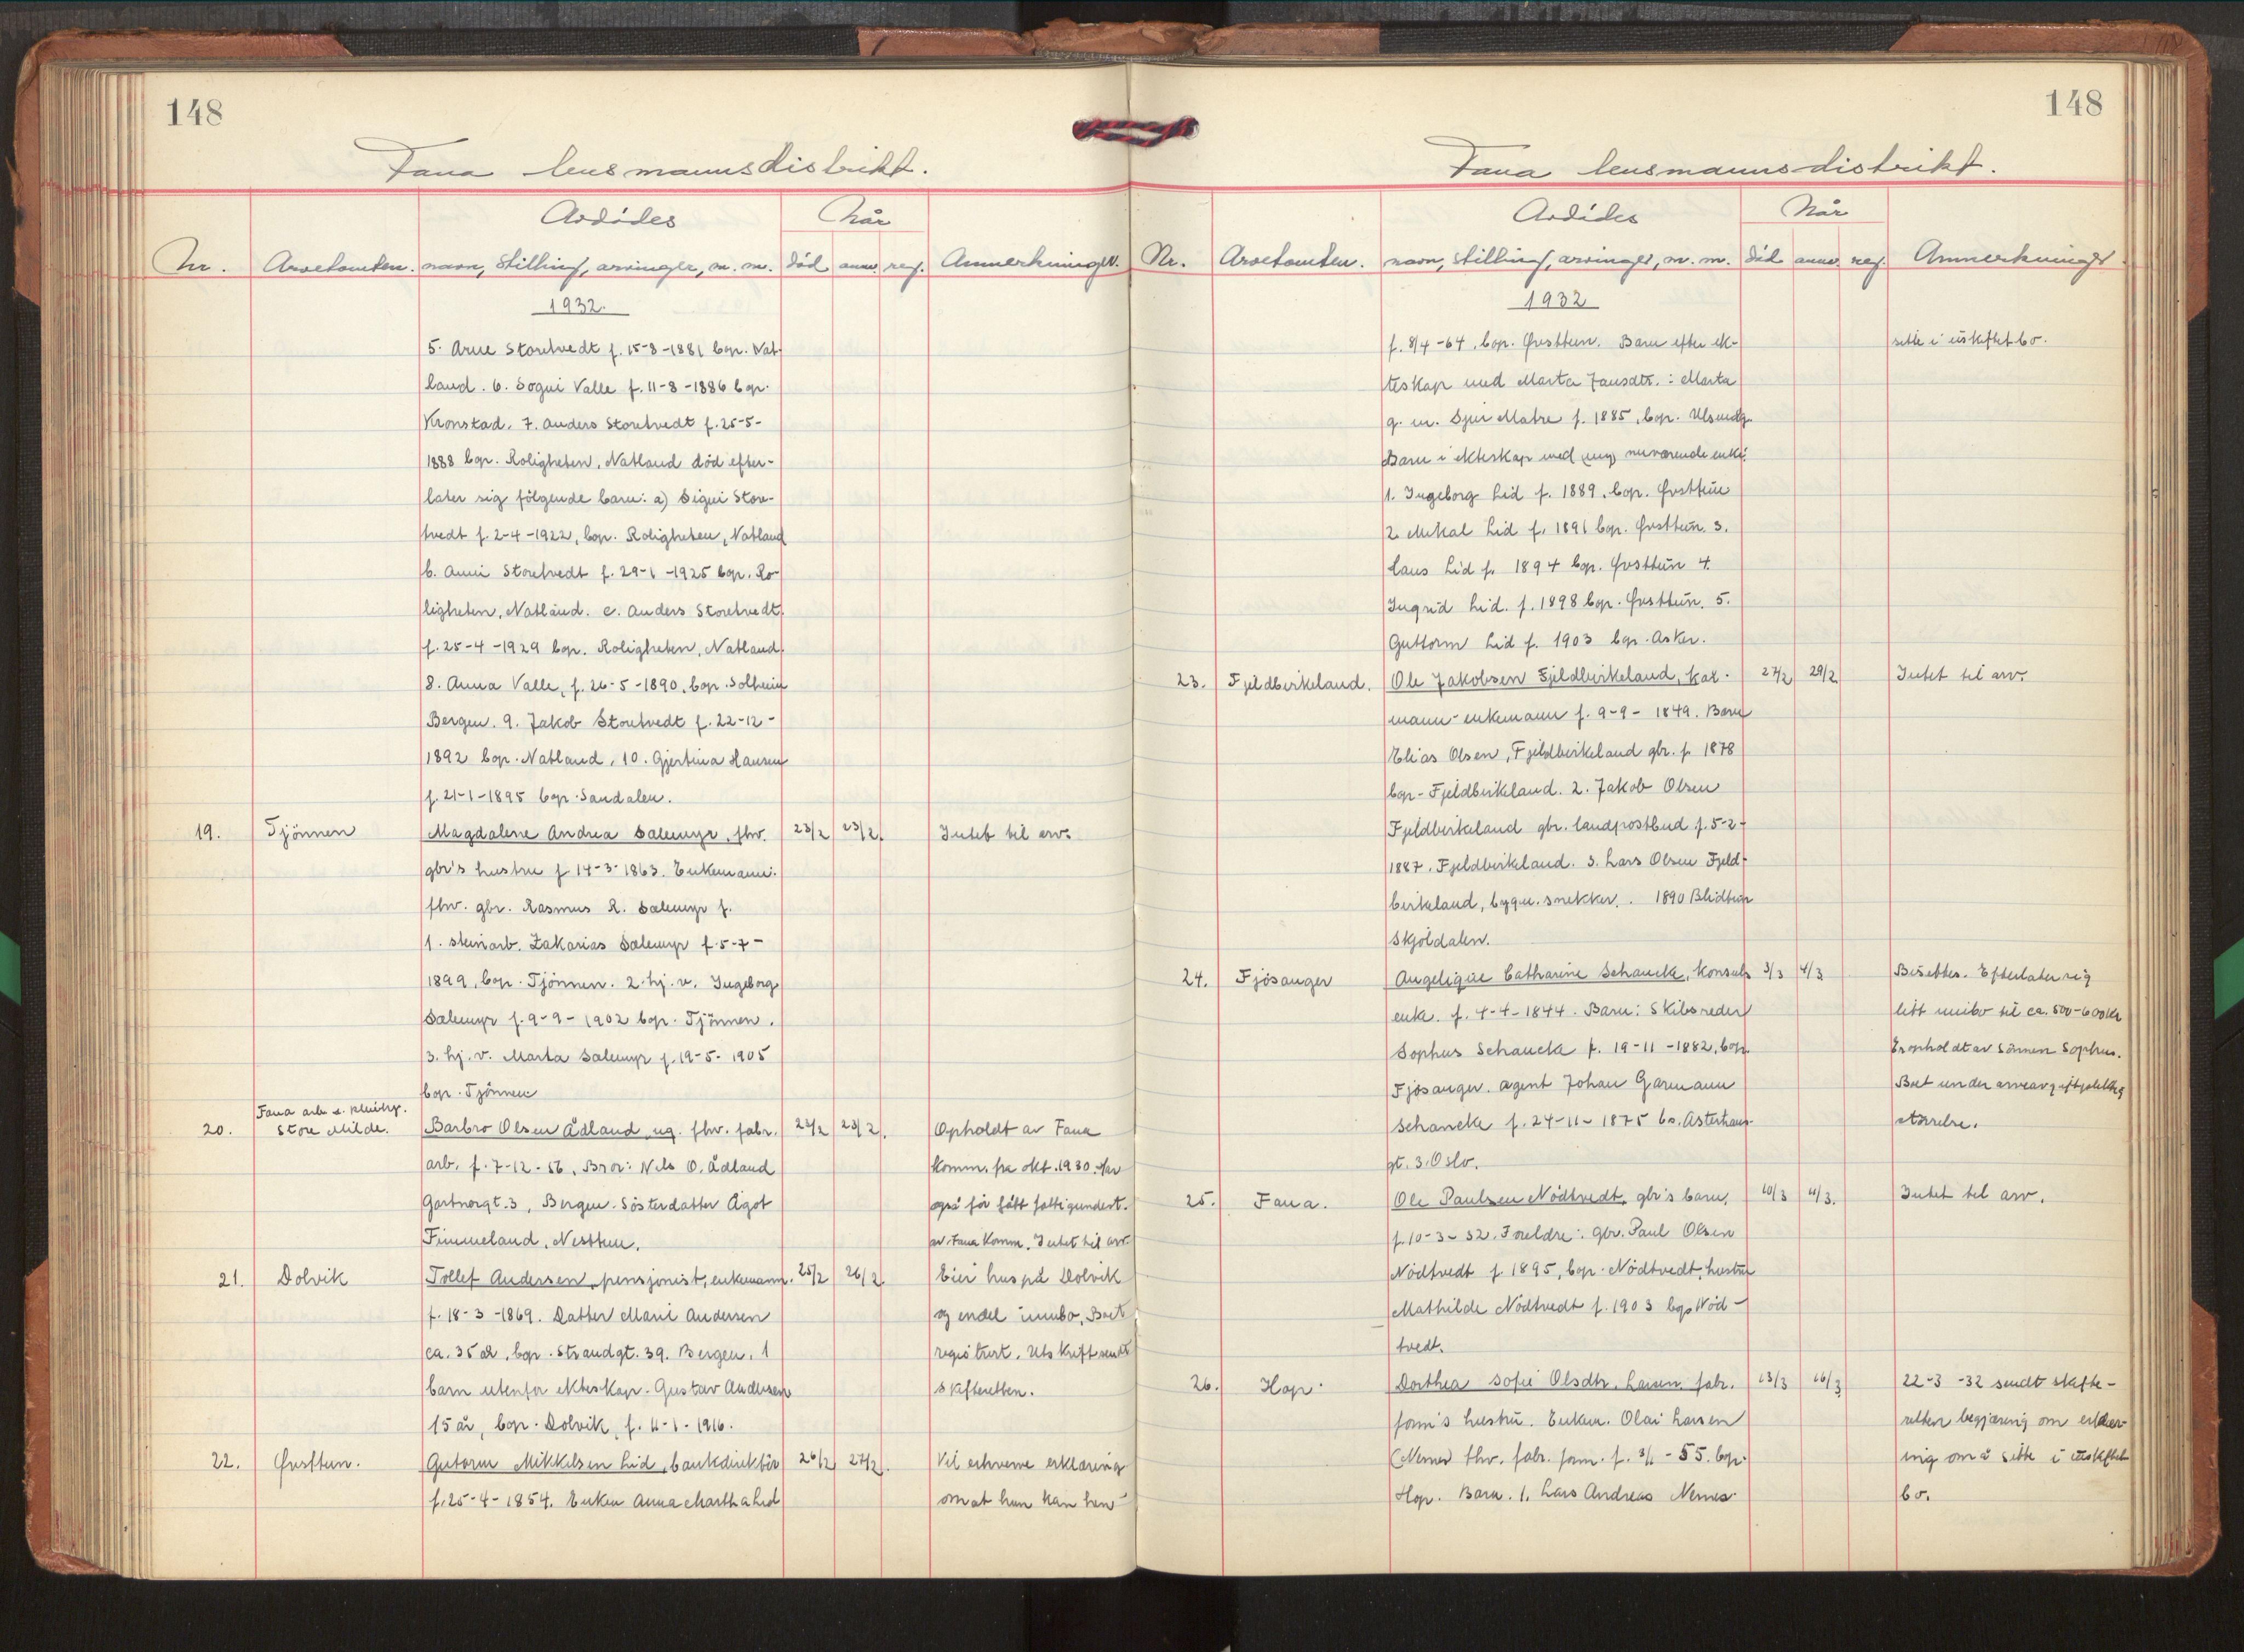 148
Fana lensmannsdistrikt.
Avdødes
Når
Nr.
Arvetomten.
navn, stilling, arvinger, m. m.
død
anm.
reg.
Anmerkninger.
1932.
5. Arne Storetvedt f. 15-8-1881 bop. Nat-
land. 6. Sogni Valle f. 11-8-1886 bop.
Kronstad. 7. Anders Storetvedt f. 25-5-
1888 bop. Roligheten, Natland död efter-
later sig fölgende barn: a) Signi Store-
tvedt f. 2-4-1922, bop. Roligheten, Natland
b. Anni Storetvedt f. 29-1-1925 bop. Ro-
ligheten, Natland. c. Anders Storetvedt
f. 25-4-1929 bop. Roligheten, Natland.
8. Anna Valle, f. 26-5-1890, bop. Solheim
Bergen. 9. Jakob Storetvedt f. 22-12-
1892 bop. Natland, 10. Gjertina Hansen
f. 21-1-1895 bop. Sandalen.
19. Tjönnen Magdalene Andrea Salemyr, fhv. 23/2 23/2. Intet til arv.
gbr's hustru f 14-3-1863. Enkemann:
fhv. gbr. Rasmus R. Salemyr f.
1. steinarb. Zakarias Salemyr f. 5-7-
1899, bop. Tjönnen. 2. hj. v. Ingeborg
Salemyr f. 9-9-1902 bop. Tjönnen.
3. hj. v. Marta Salemyr f. 19-5-1905
bop. Tjönnen
Fana arb. &
20. Store Milde. Barbro Olsen Ådland, ug. fhv. fabr. 22/2 23/2. Opholdt av Fana
arb. f. 7-12-56, Bror: Nils O. Ådland komm. fra okt. 1930. Har
Gartnergt. 3, Bergen. Sösterdatter Ågot også för fått fattigunderst.
Fimmeland, Nesttun. av Fana Komm. Intet til arv.
21. Dolvik Tollef Andersen, pensjonist, enkemann. 25/2 26/2 Eier hus på Dolvik
f. 18-3-1869. Datter Marie Andersen og endel innbo, Boet
ca. 35 år, bop. Strandgt. 39. Bergen. 1 registrert. Utskrift sendt
barn utenfor ekteskap. Gustav Andersen skifteretten.
15 år, bop. Dolvik, f. 4-1-1916.
22. Øvsttun. Gutorm Mikkelsen Lid, bankdirektör 26/2 27/2. Vil erhverve erklæring
f. 25-4-1854. Enken Anna Martha Lid om at hun kan hen-
148
Fana lensmannsdistrikt.
Avdødes
Når
Nr.
Arvetomten.
navn, stilling, arvinger, m. m.
død
anm.
reg.
Anmerkninger
1932
f. 8/4-64, bop. Øvsttun. Barn efter ek- sitte i uskiftet bo.
teskap med Marta Jansdtr.: Marta
g. m. Sjur Matre f. 1885, bop.
Barn i ekteskap med nuværende enke:
1. Ingeborg Lid f. 1889, bop. Øvsttun
2. Mikal Lid f. 1891 bop. Øvsttun. 3.
Lars Lid f. 1894 bop. Øvsttun 4.
Ingrid Lid. f. 1898 bop. Øvsttun. 5.
Guttorm Lid f. 1903 bop. Asker.
23. Fjeldbirkeland. Ole Jakobsen Fjeldbirkeland, kår- 27/2 29/2 Intet til arv.
mann-enkemann f. 9-9-1849. Barn
Elias Olsen, Fjeldbirkeland gbr. f. 1878
bop. Fjeldbirkeland. 2. Jakob Olsen
Fjeldbirkeland gbr. landpostbud f. 5-2-
1887. Fjeldbirkeland. 3. Lars Olsen Fjeld-
birkeland, bygn. snekker. . 1890 Blidtun
Skjoldalen.
24. Fjösanger Angelique Catharine Schancke, konsuls 3/3 4/3 Bisettes. Efterlater sig
enke. f. 4-4-1844. Barn: Skibsreder litt innbo til ca. 500-600 kr
Sophus Schancke f. 19-11-1882, bop. Er opholdt av sönnen Sophus.
Fjösanger. agent Johan Garmann Boet under
Schancke f. 24-11-1875 bo. störrelse.
gt. 3. Oslo.
25. Fana. Ole Paulsen Nödtvedt, gbr's barn, 10/3 11/3. Intet til arv.
f. 10-3-32. Foreldre: gbr. Paul Olsen
Nödtvedt f. 1895, bop. Nödtvedt, hustru
Mathilde Nödtvedt f. 1903 bop Nöd-
tvedt.
26. Hop. Dorthea Sofie Olsdtr. Larsen, fabr. 13/3 16/3 22-3-32 sendt skifte-
form's hustru. Enkem. Olai Larsen retten begjæring om erklær-
(Nemes fhv. fabr. form. f. 3/1-55. bop. ing om å sitte i uskiftet
Hop. Barn. 1. Lars Andreas Nemes bo.